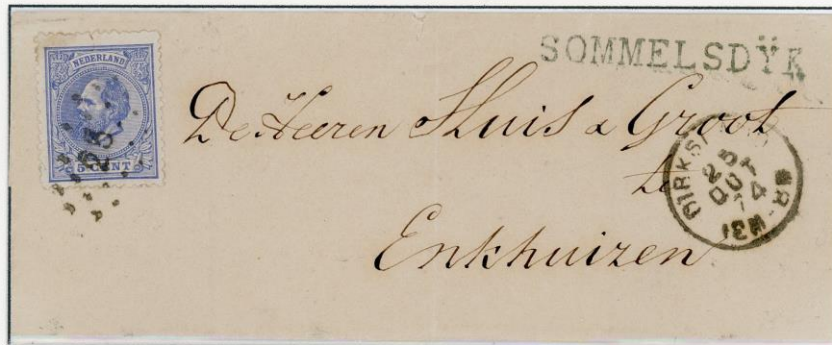 NEDERLAND
5 CENT
25
SOMMELSDŸK
De Heeren Sluis & Groot
te
Enkhuizen
DIRKSLAND
25
OCT
74